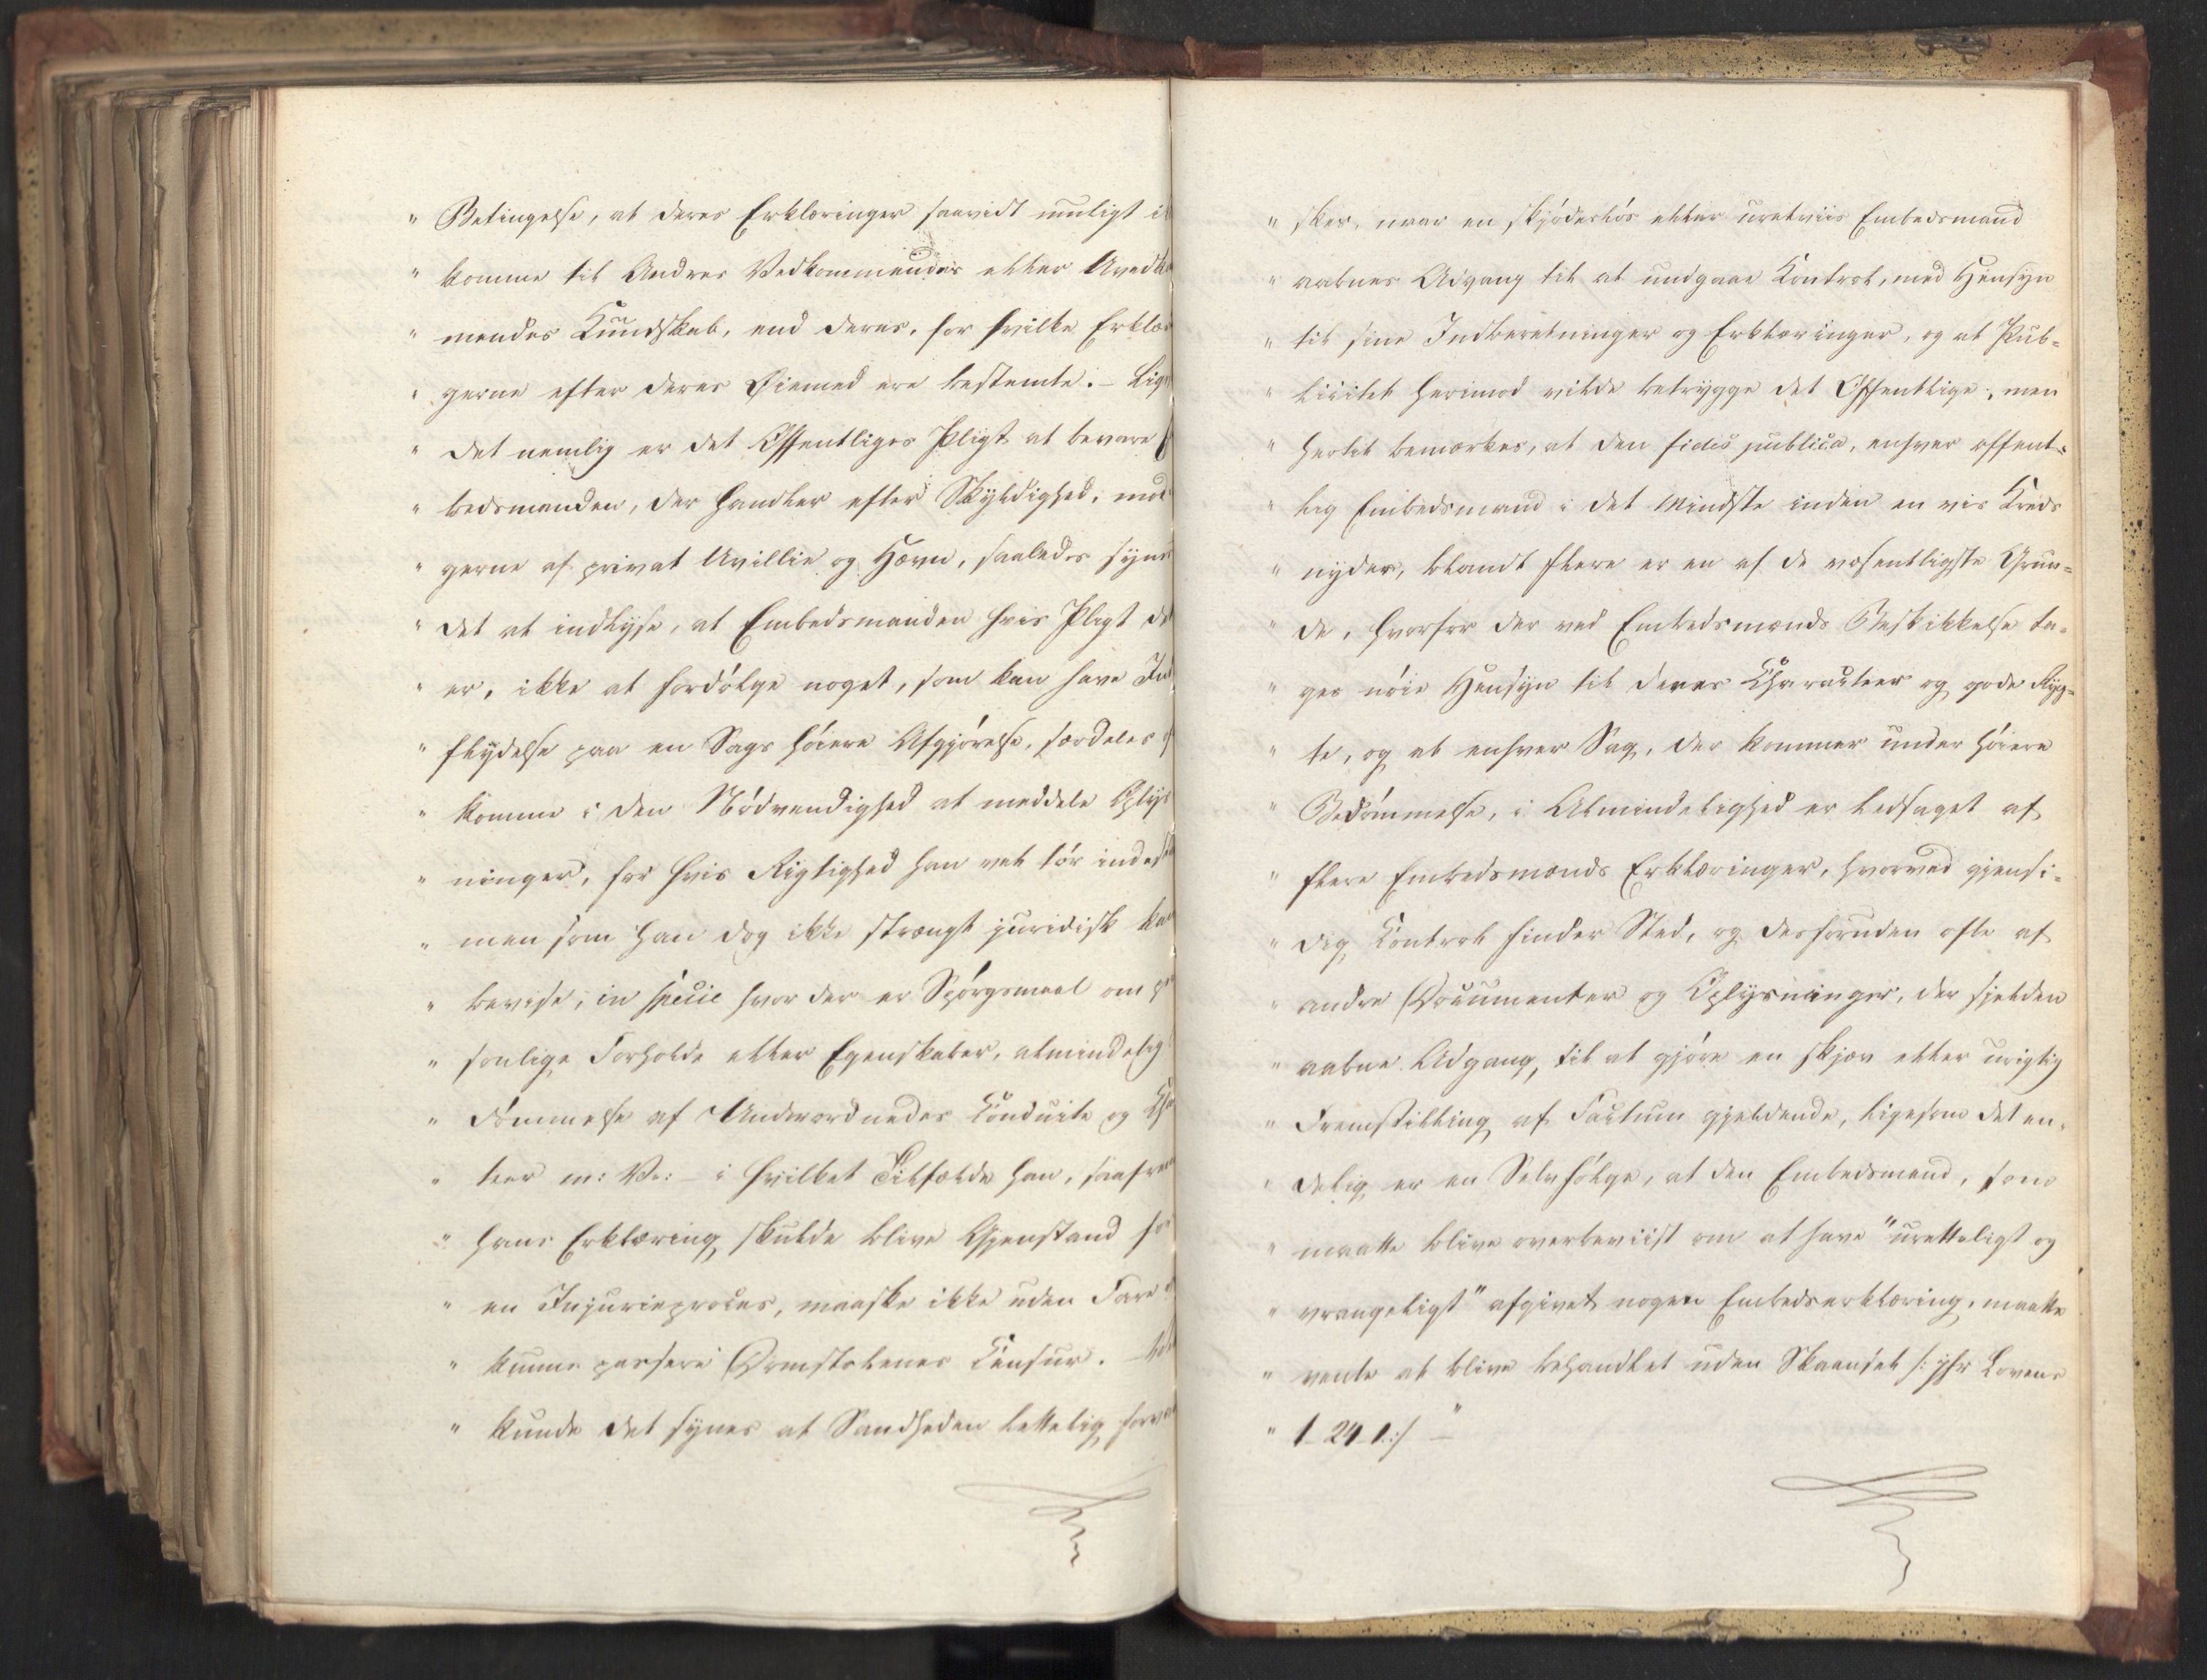 " Betingelse, at deres Erklæringer saavidt muligt i
" komme til Andres Vedkommendes eller Uvedko
" mendes Kundskab, end deres, for hvilke Erklær
" gerne efter deres Øiemed ere bestemte. – Lige
" det nemlig er det Offentliges Pligt at bevare E
" bedsmanden, der handler efter Skyldighed, mod
" gerne af privat Uvillie og Hævn, saaledes synes
" det at indlyse, at Embedsmanden hvis Pligt det
" er, ikke at fordølge noget, som kan have Ind
" flydelse paa en Sags høiere Afgjørelse, særdeles
" komme i den Nødvendighed at meddele Oplys
" ninger, for hvis Rigtighed han vel tør indestaae
" men som han dog ikke strængt juridisk kan
" bevise, in specie hvor der er Spørgsmaal om per
" sonlige Forholde eller Egenskaber, almindelig
" dømmelse af Underordnedes Conduite og Cha
" teer m: V: – i hvilket Tilfælde han, saafrem
" hans Erklæring skulde blive Gjenstand for
" en Injurieproces, maaske ikke uden Fare
" kunne passere Domstolenes Censur.
" kunde det synes at Sandheden lettelig
" skes, naar en skjødesløs eller uretviis Embedsmand
" aabnes Adgang til at undgaae Control, med Hensyn
" til sine Indberetninger og Erklæringer, og at Pub-
" licitet herimod vilde betrygge det Offentlige; men
" hertil bemærkes, at den fides publica, enhver offent-
" lig Embedsmand i det Mindste inden en vis Kreds
" nyder, blandt flere er en af de væsentligste Grun-
" de, hvorfor der ved Embedsmænds Beskikkelse ta-
" ges nøie Hensyn til deres Characteer og gode Ryg-
" te, og at enhver Sag, der kommer under høiere
" Bedømmelse, i Almindelighed er ledsaget af
" flere Embedsmænds Erklæringer, hvorved gjensi-
" dig Control finder Sted, og desforuden ofte af
" andre Documenter og Oplysninger, der sjelden
" aabne Adgang, til at gjøre en skjæv eller urigtig
" Fremstilling af Factum gjeldende, ligesom det en-
" delig er en Selvfølge, at den Embedsmand, som
" maatte blive overbeviist om at have "uretteligt og
" vrangeligt" afgivet nogen Embedserklæring, maatte
" vente at blive behandlet uden Skaansel /: jfr Lovens
" 1–24–1:/ – "